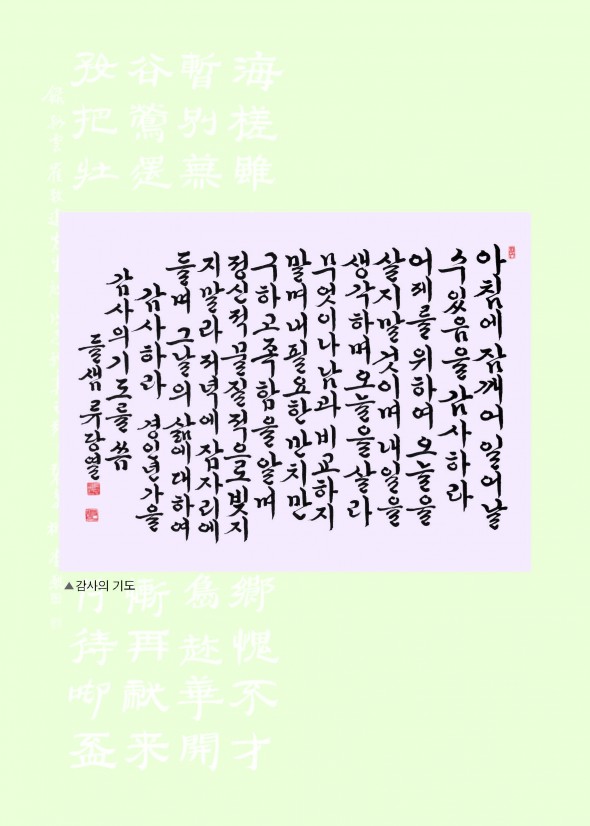 아침에 잠깨어 일어날
수 있음을 감사하라
어제를 위하여 오늘을
살지말것이며 내일을
생각하며 오늘을 살라
무엇이나 남과 비교하지
말며 내 필요한 만치만
구하고 족함을 알며
정신적 물질적으로 빚지
지말라 저녁에 잠자리에
들며 그날의 삶에 대하여
감사하라 경인년 가을
감사의 기도를 씀
들샘 류당열
▲감사의 기도
海槎雖
暫別葉
谷鶯還
把壯
鄉愧不才
趂華開
漸再献来
待卿盃